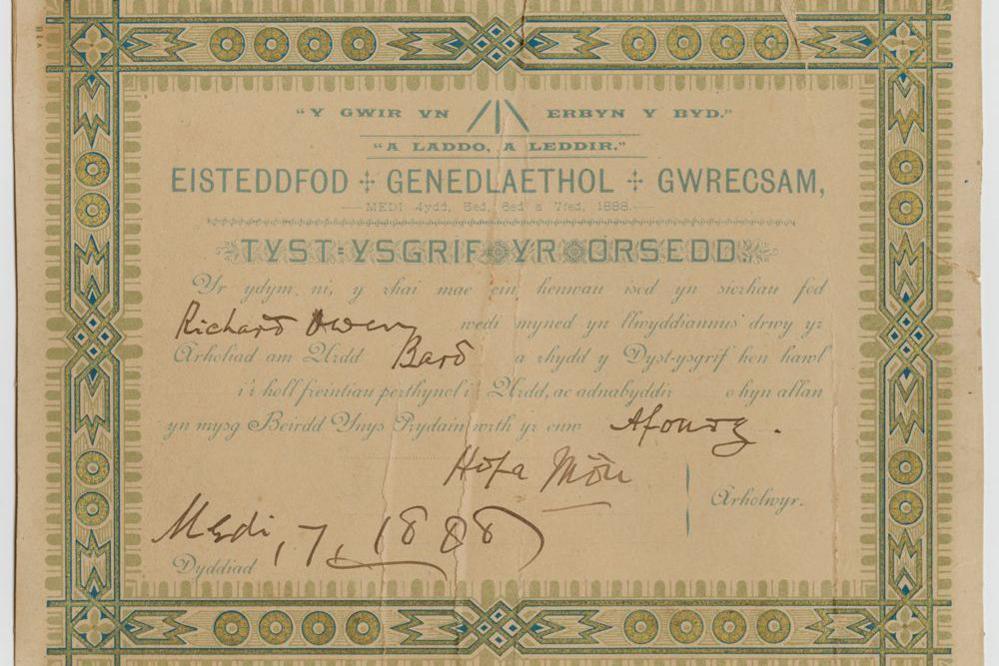 "Y GWIR YN ERBYN Y BYD."
"A LADDO, A LEDDIR."
EISTEDDFOD GENEDLAETHOL GWRECSAM,
MEDI 4ydd, 5ed, 6ed a 7fed, 1888.
TYST-YSGRIF YR ORSEDD.
Yr ydym ni, y rhai mae ein henwau isod yn sicrhau fod
Richard Owen wedi myned yn llwyddiannus drwy yr
Arholiad am Urdd Bard a rhydd y Dyst-ysgrif hon hawl
i'r holl freintiau perthynol i Urdd, ac adnabyddir o hyn allan
yn mysg Beirdd Ynys Prydain wrth yr enw
Hwfa Môn
Arholwyr.
Medi, 7, 1888
Dyddiad